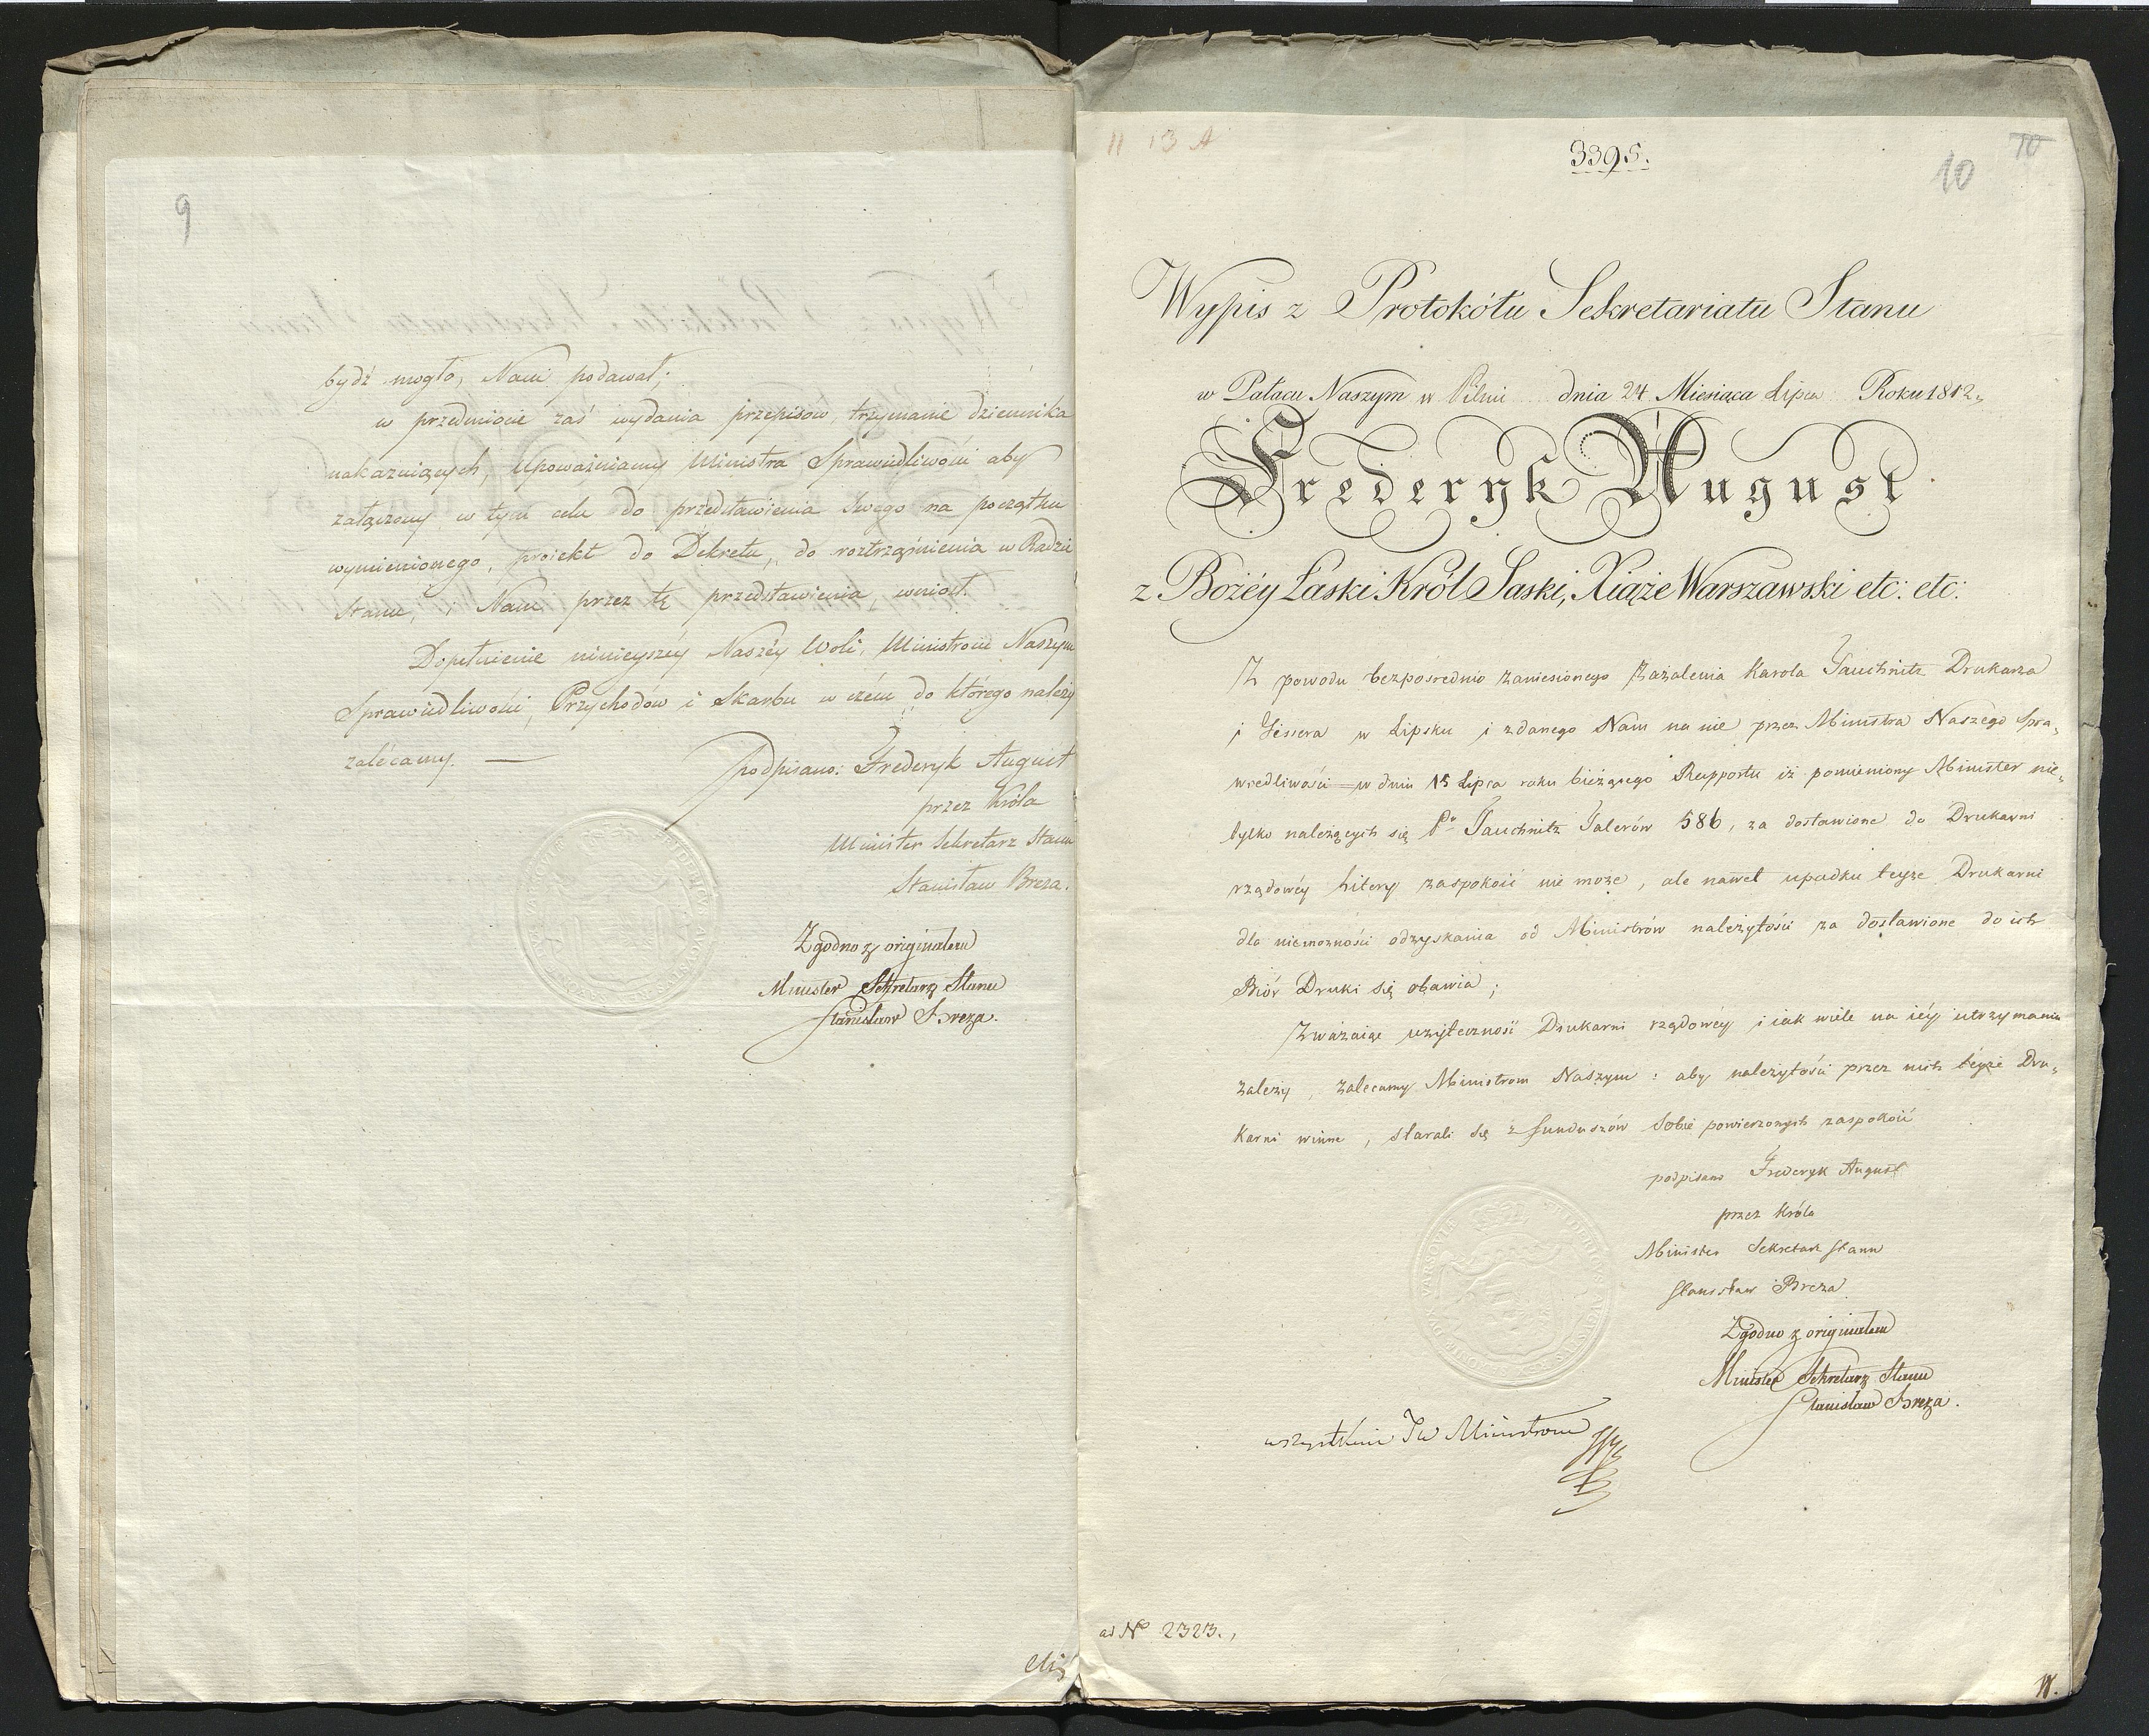 9
bydź mogło, Nam podawał;
w przedmiocie zaś wydania przepisow, trzymanie dziennika
nakazuiących, Upoważniamy Ministra Sprawiedliwości aby
załączony w tym celu do przedstawienia Swego na początku
wymienionego, proiekt do Dekretu, do roztrząśnienia w Radzie
Stanu, i Nam przez tę przedstawienia, wniosł.
Dopełnienie ninieyszéy Naszéy Woli, Ministrom Naszym
Sprawiedliwości, Przychodów i Skarbu w czém do którego należy
zalécamy. —
podpisano: Frederyk August
przez Króla
Minister Sekretarz Stanu
Stanisław Breza.
Zgodno z originałem
Minister Sekretarz Stanu
Stanisław Breza.
11 13 A
3395.
10
10
Wypis z Protokółu Sekretariatu Stanu
w Pałacu Naszym w Pilni dnia 24 Miesiąca Lipca Roku 1812,
Frederyk August
z Bożéy Łaski Król Saski, Xiąże Warszawski etc: etc:
Z powodu bezposrednio zaniesionego Zażalenia Karola Tauchnitz Drukarza
i Gissera w Lipsku i zdanego Nam na nie przez Ministra Naszego Spra„
wiedliwości w dniu 15 Lipca roku bieżącego Rapportu iż pomieniony Minister nie„
tylko należących się Pu Tauchnitz Talerów 586, za dostawione do Drukarni
rządowéy Litery zaspokoić nie może, ale nawet upadku teyże Drukarni
dla niemożności odzyskania od Ministrów należytości za dostawione do ich
Biór Druki się obawia;
Zważaiąc użyteczność Drukarni rządowéy i iak wiele na iéy utrzymaniu
zależy, zalecamy Ministrom Naszym: aby należytości przez nich teyże Dru„
karni winne, starali się z funduszów Sobie powierzonych zaspokoić
podpisano Frederyk August
przez Króla
Minister Sekretarz Stanu
Stanisław Breza
Zgodno z originałem
Minister Sekretarz Stanu
Stanisław Breza.
wszystkim JW Ministrom
ad No 2323.,